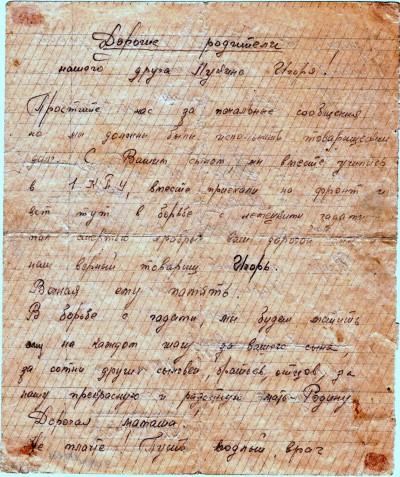 Дорогие родители
нашего друга Игоря!
Простите нас за печальные сообщения
но мы должны были исполнить товарищеский
долг. С Вашим сыном, мы вместе учились
в вместе приехали на фронт и
вот тут в борьбе с гадами
пал смертью храбрых ваш дорогой
наш верный товарищ Игорь.
Вечная ему память.
В борьбе с гадами, мы будем мстить
на каждом шагу за вашего сына
за сотни других сыновей, братьев, отцов, за
нашу прекрасную и радостную мать-Родину
Дорогая мамаша!
Не плачте! Пусть подлый, враг